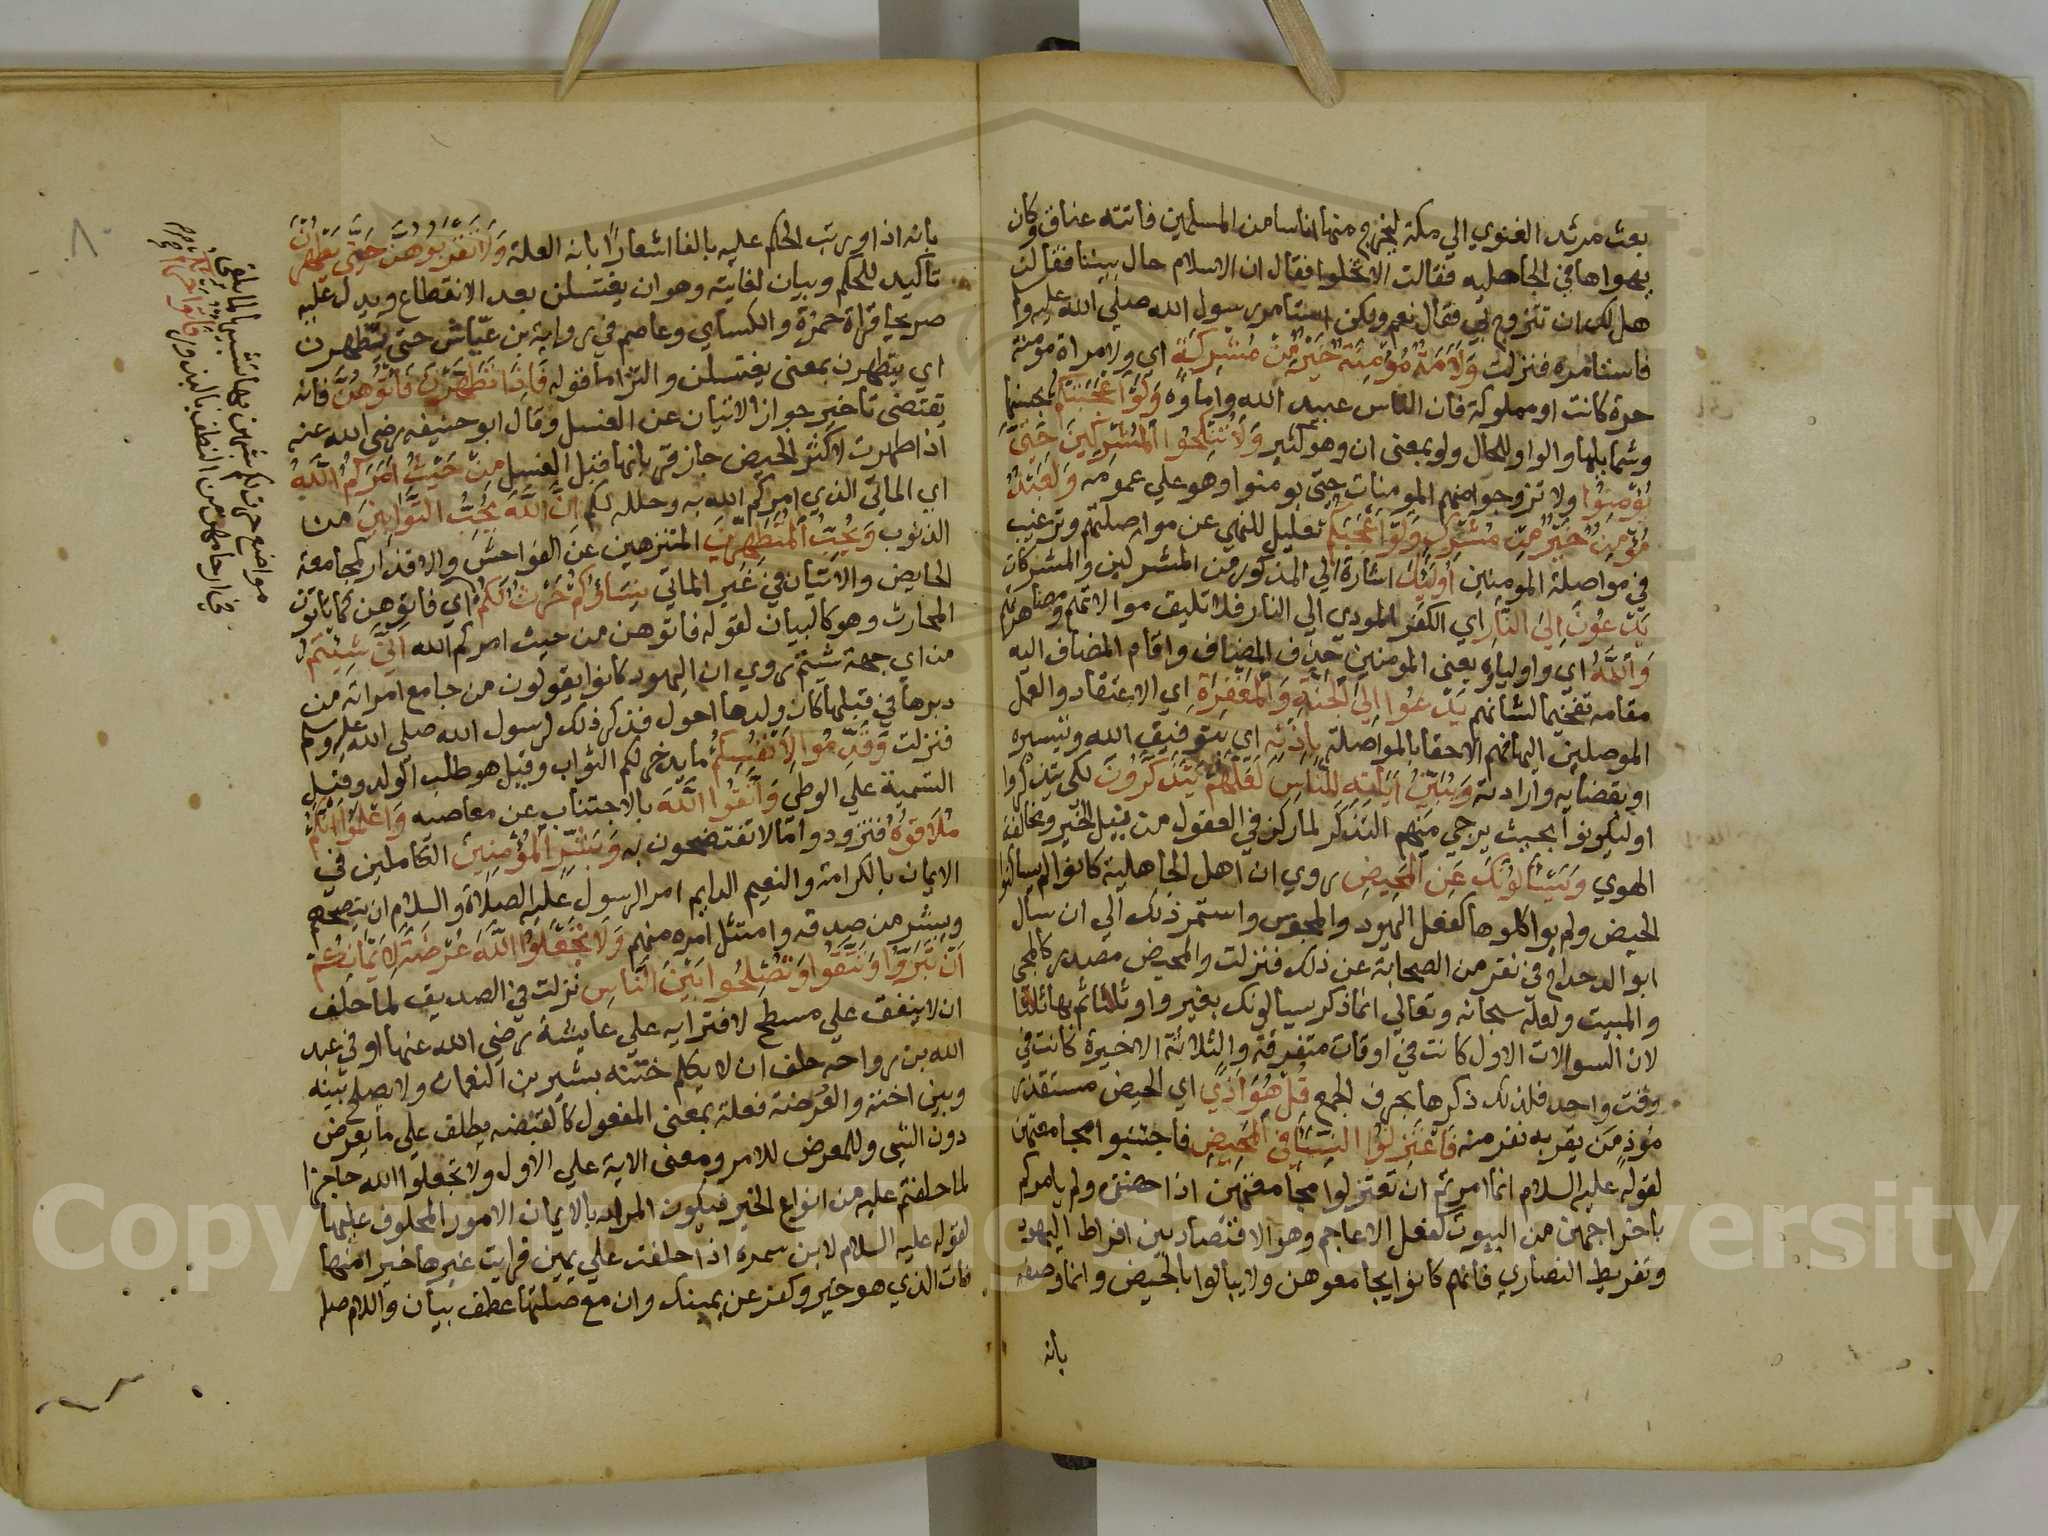 بعث مرثد الغنوي الي مكة ليخرج منها اناسا من المسلمين فاتته عناق وكان
يهواها في الجاهليه فقالت الا تخلوا فقال ان الاسلام حال بيننا فقالت
هل لك ان تتزوج بي فقال نعم ولكن استامر رسول الله صلي الله عليه وسلم
فاستامره فنزلت وَلَاَمَةٌ مُؤْمِنَةٌ خَيْرٌ مِنْ مُشْرِكَةٍ اي ولامراة مومنة
حرة كانت او مملوكة فان الناس عبيد الله واماوه وَلَوْ اَعْجَبَتْكُمْ بحسنها
وشمايلها والواو للحال ولو بمعنى ان وهو كثير وَلَا تُنْكِحُوا الْمُشْرِكِينَ حَتَّى
يُؤْمِنُوا ولا تزوجوا منهم المومنات حتى يومنوا وهو علي عمومه وَلَعَبْدٌ
مُؤْمِنٌ خَيْرٌ مِنْ مُشْرِكٍ وَلَوْ اَعْجَبَكُمْ تعليل للنهي عن مواصلتهم وترغيب
في مواصلة المومنين اُولَئِكَ اشارة الي المذكورين من المشركين والمشركات
يَدْعُونَ اِلَى النَّارِ اي الكفر المودي الي النار فلا تليق موالاتهم ومصاهرتهم
وَاللَّهُ اي واولياوه يعنى المومنين حذف المضاف واقام المضاف اليه
مقامه تفخيما لشانهم يَدْعُوا اِلَى الْجَنَّةِ وَالْمَغْفِرَةِ اي الاعتقاد والعمل
الموصلين اليهما فهم الاحقا بالمواصلة بِاِذْنِهِ اي بتوفيق الله وتيسيره
او بقضايه وارادته وَيُبَيِّنُ اٰيَاتِهِ لِلنَّاسِ لَعَلَّهُمْ يَتَذَكَّرُونَ لكي يتذكروا
او ليكونوا بحيث يرجي منهم التذكر لما ركز في العقول من ميل الخير ومخالفة
الهوي وَيَسْأَلُونَكَ عَنِ الْمَحِيضِ روي ان اهل الجاهلية كانوا لم يساكنوا
الحيض ولم يواكلوها كفعل اليهود والمجوس واستمر ذلك الي ان سال
ابو الدحداح في نفر من الصحابة عن ذلك فنزلت والمحيض مصدر كالمجي
والمبيت ولعله سبحانه وتعالي انما ذكر يسالونك بغير واو ثلاثا ثم بها ثلاثا
لان السوالات الاول كانت في اوقات متفرقة والثلاثة الاخيرة كانت في
وقت واحد فلذلك ذكرها بحرف الجمع قُلْ هُوَ اَذًي اي الحيض مستقذر
موذ من يقربه نفرمنه فَاعْتَزِلُوا النِّسَاءَ فِي الْمَحِيضِ فاجتنبوا مجامعتهن
لقوله عليه السلام انما امرتم ان تعتزلوا مجامعتهن اذا حضن ولم يامركم
باخراجهن من البيوت كفعل الاعاجم وهو الاقتصاد بين افراط اليهود
وتفريط النصاري فانهم كانوا يجامعوهن ولا يبالوا بالحيض وانما وصفه
بانه
بانه اذا ورتب الحكم عليه بالفا اشعارًا بانه العلة وَلَا تَقْرَبُوهُنَّ حَتَّى يَطْهُرْنَ
تاكيد للحكم وبيان لغايته وهو ان يغتسلن بعد الانقطاع ويدل عليه
صريحا قراة حمزة والكساي وعاصم في رواية بن عيّاش حتى يتطهرن
اي يتطهرن بمعنى يغتسلن والتزاما قوله فَاِذَا تَطَهَّرْنَ فَأْتُوهُنَّ فانه
يقتضى تاخير جواز الاتيان عن الغسل وقال ابو حنيفه رضي الله عنه
اذا طهرت لاكثر الحيض جاز قربانها قبل الغسل مِنْ حَيْثُ اَمَرَكُمُ اللَّهُ
اي الماتي الذي امركم الله به وحلله لكم اِنَّ اللَّهَ يُحِبُّ التَّوَّابِينَ من
الذنوب وَيُحِبُّ الْمُتَطَهِّرِينَ المتنزهين عن الفواحش والاقذار كمجامعة
الحايض والاتيان في غير الماتي نِسَاؤُكُمْ حَرْثٌ لَكُمْ اي فاتوهن كما تاتون
المحارث وهو كالبيان لقوله فاتوهن من حيث امركم الله اَنَّى شِئْتُمْ
من اي جهة شيتم روي ان اليهود كانوا يقولون من جامع امراته من
دبرها في قبلها كان ولدها احول فذكر ذلك لرسول الله صلي الله عليه وسلم
فنزلت وَقَدِّمُوا لِاَنْفُسِكُمْ ما يدخر لكم الثواب وقيل هو طلب الولد وقيل
التسمية علي الوطي وَاتَّقُوا اللَّهَ بالاجتناب عن معاصيه وَاعْلَمُوا اَنَّكُمْ
مُلَاقُوهُ فتزودوا ما لا تفتضحون به وَبَشِّرِ الْمُؤْمِنِينَ الكاملين في
الايمان بالكرامة والنعيم الدايم امر الرسول عليه الصلاة والسلام ان ينصحهم
ويبشر من صدقه وامتثل امره منهم وَلَا تَجْعَلُوا اللَّهَ عُرْضَةً لِاَيْمَانِكُمْ
اَنْ تَبَرُّوا وَتَتَّقُوا وَتُصْلِحُوا بَيْنَ النَّاسِ نزلت في الصديق لما حلف
ان لا ينفق علي مسطح لافترايه علي عايشة رضي الله عنها او في عبد
الله بن رواحه حلف ان لا يكلم ختنه بشير بن النعمان ولا يصلح بينه
وبين اخته والعُرضة فعلة بمعنى المفعول كالقبضه يطلق علي ما يعرض
دون الشي وللمعرض للامر ومعنى الاية علي الاول ولا تجعلوا الله حاجزا
لما حلفتم عليه من انواع الخير فيكون المراد بالايمان الامور المحلوف عليها
لقوله عليه السلام لابن سمرة اذا حلفت علي يمين فرايت غيرها خيرا منها
فات الذي هو خير وكفر عن يمينك وان مع صلتها عطف بيان واللام صله
مواضع حرث لكم شبههن بها تشبيها لما يلقى
في ارحامهن من النطف بالبذور فَأْتُوا حَرْثَكُمْ